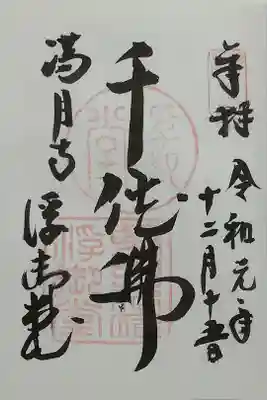 奉拝
令和元年
十二月十五日
千体佛
満月寺
浮御堂